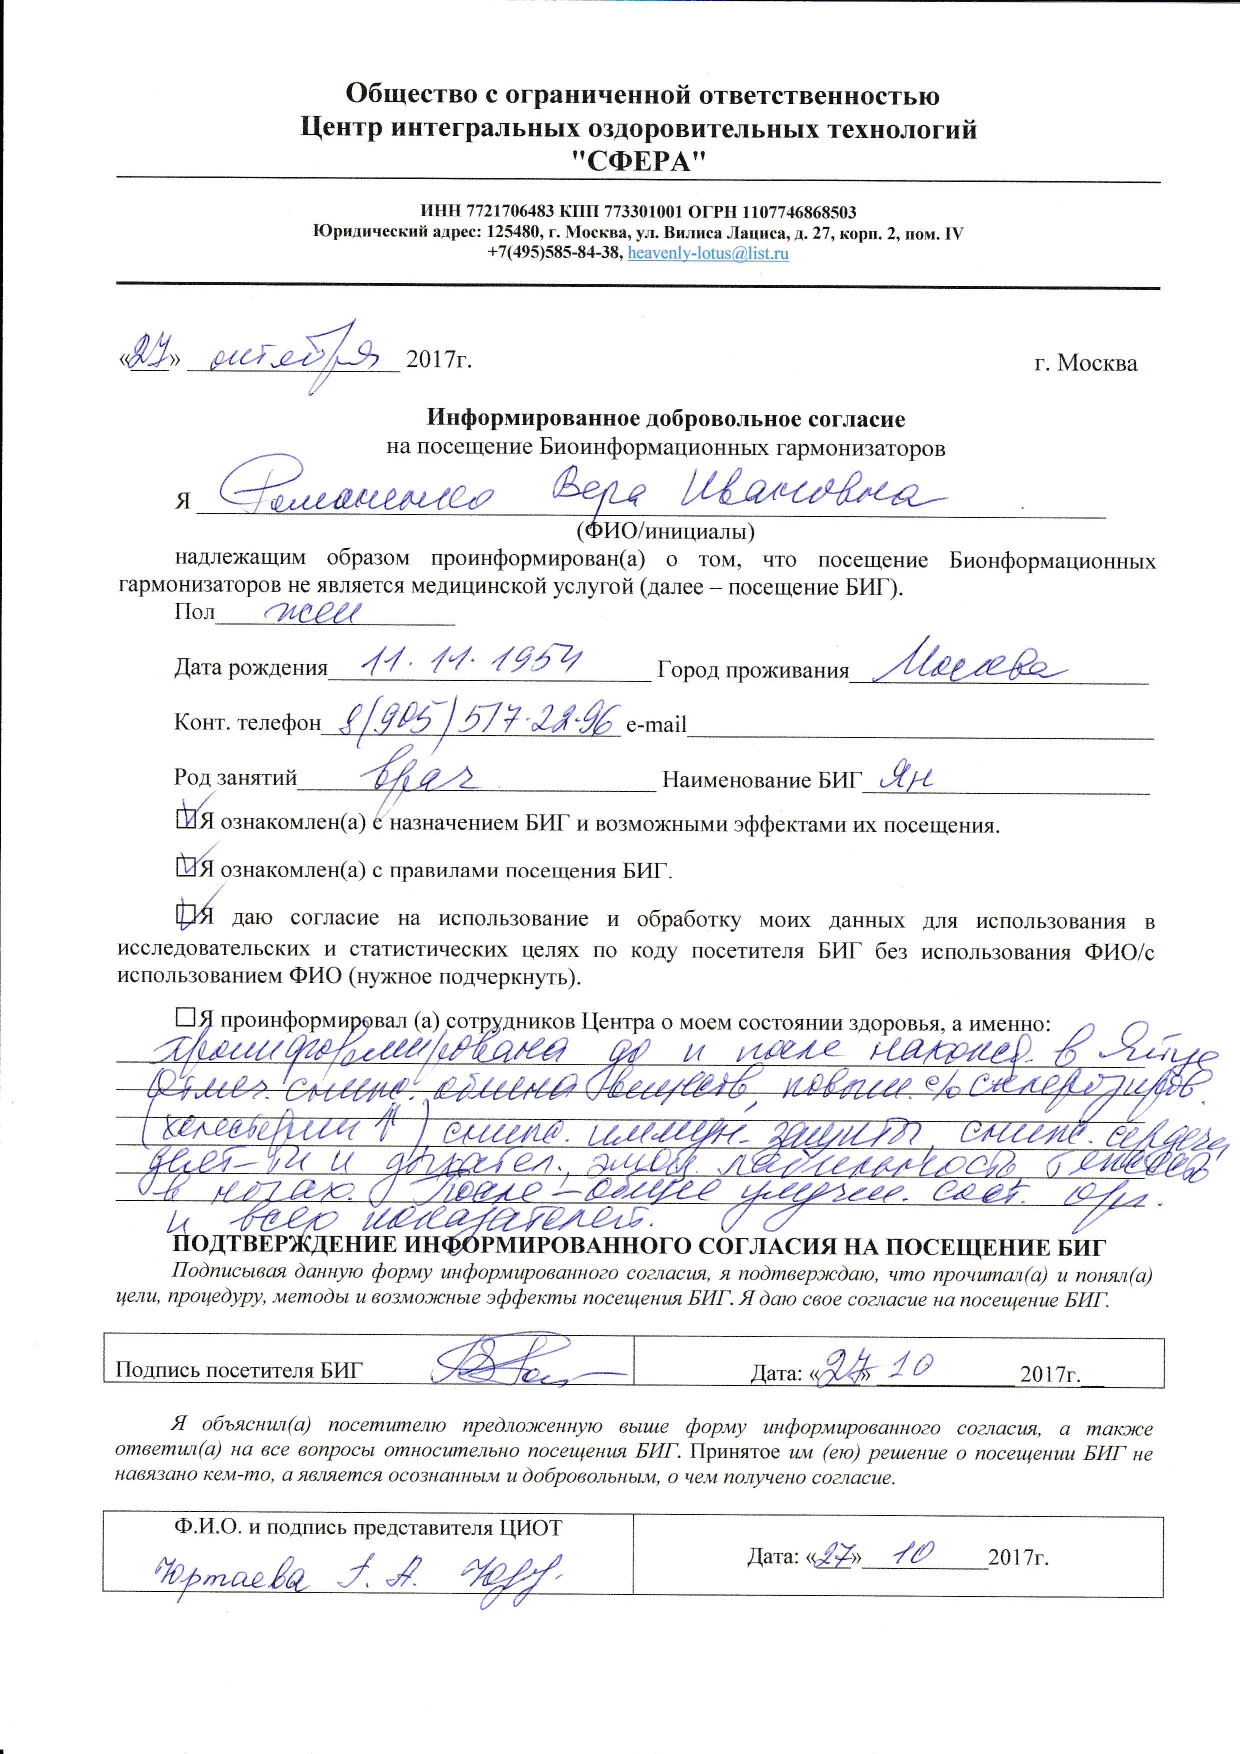 Общество с ограниченной ответственностью
Центр интегральных оздоровительных технологий
"СФЕРА"
ИНН 7721706483 КПП 773301001 ОГРН 1107746868503
Юридический адрес: 125480, г. Москва, ул. Вилиса Лациса, д. 27, корп. 2, пом. IV
+7(495)585-84-38, heavenly-lotus@list.ru
«27» октября 2017г. г. Москва
Информированное добровольное согласие
на посещение Биоинформационных гармонизаторов
Я Романенко Вера Ивановна
(ФИО/инициалы)
надлежащим образом проинформирован(а) о том, что посещение Бионформационных
гармонизаторов не является медицинской услугой (далее – посещение БИГ).
Пол жен
Дата рождения 11.11.1954 Город проживания Москва
Конт. телефон 8(905)517-22-96 e-mail
Род занятий врач Наименование БИГ Ян
Я ознакомлен(а) с назначением БИГ и возможными эффектами их посещения.
Я ознакомлен(а) с правилами посещения БИГ.
Я даю согласие на использование и обработку моих данных для использования в
исследовательских и статистических целях по коду посетителя БИГ без использования ФИО/с
использованием ФИО (нужное подчеркнуть).
Я проинформировал (а) сотрудников Центра о моем состоянии здоровья, а именно:
проинформирована до и после нахожд. в Яйце
Отмеч. сниж. обмена веществ, повыш. склерозиров.
(холестерин ↑), сниж. иммун. защиты, сниж. сердечн
деят-ти и дыхател., лабильность тяжесть
в ногах. После – общее улучш. сост. орг.
и всех показателей.
ПОДТВЕРЖДЕНИЕ ИНФОРМИРОВАННОГО СОГЛАСИЯ НА ПОСЕЩЕНИЕ БИГ
Подписывая данную форму информированного согласия, я подтверждаю, что прочитал(а) и понял(а)
цели, процедуру, методы и возможные эффекты посещения БИГ. Я даю свое согласие на посещение БИГ.
Подпись посетителя БИГ Дата: «27» 10 2017г.
Я объяснил(а) посетителю предложенную выше форму информированного согласия, а также
ответил(а) на все вопросы относительно посещения БИГ. Принятое им (ею) решение о посещении БИГ не
навязано кем-то, а является осознанным и добровольным, о чем получено согласие.
Ф.И.О. и подпись представителя ЦИОТ
Юртаева Г. А. Дата: «27» 10 2017г.